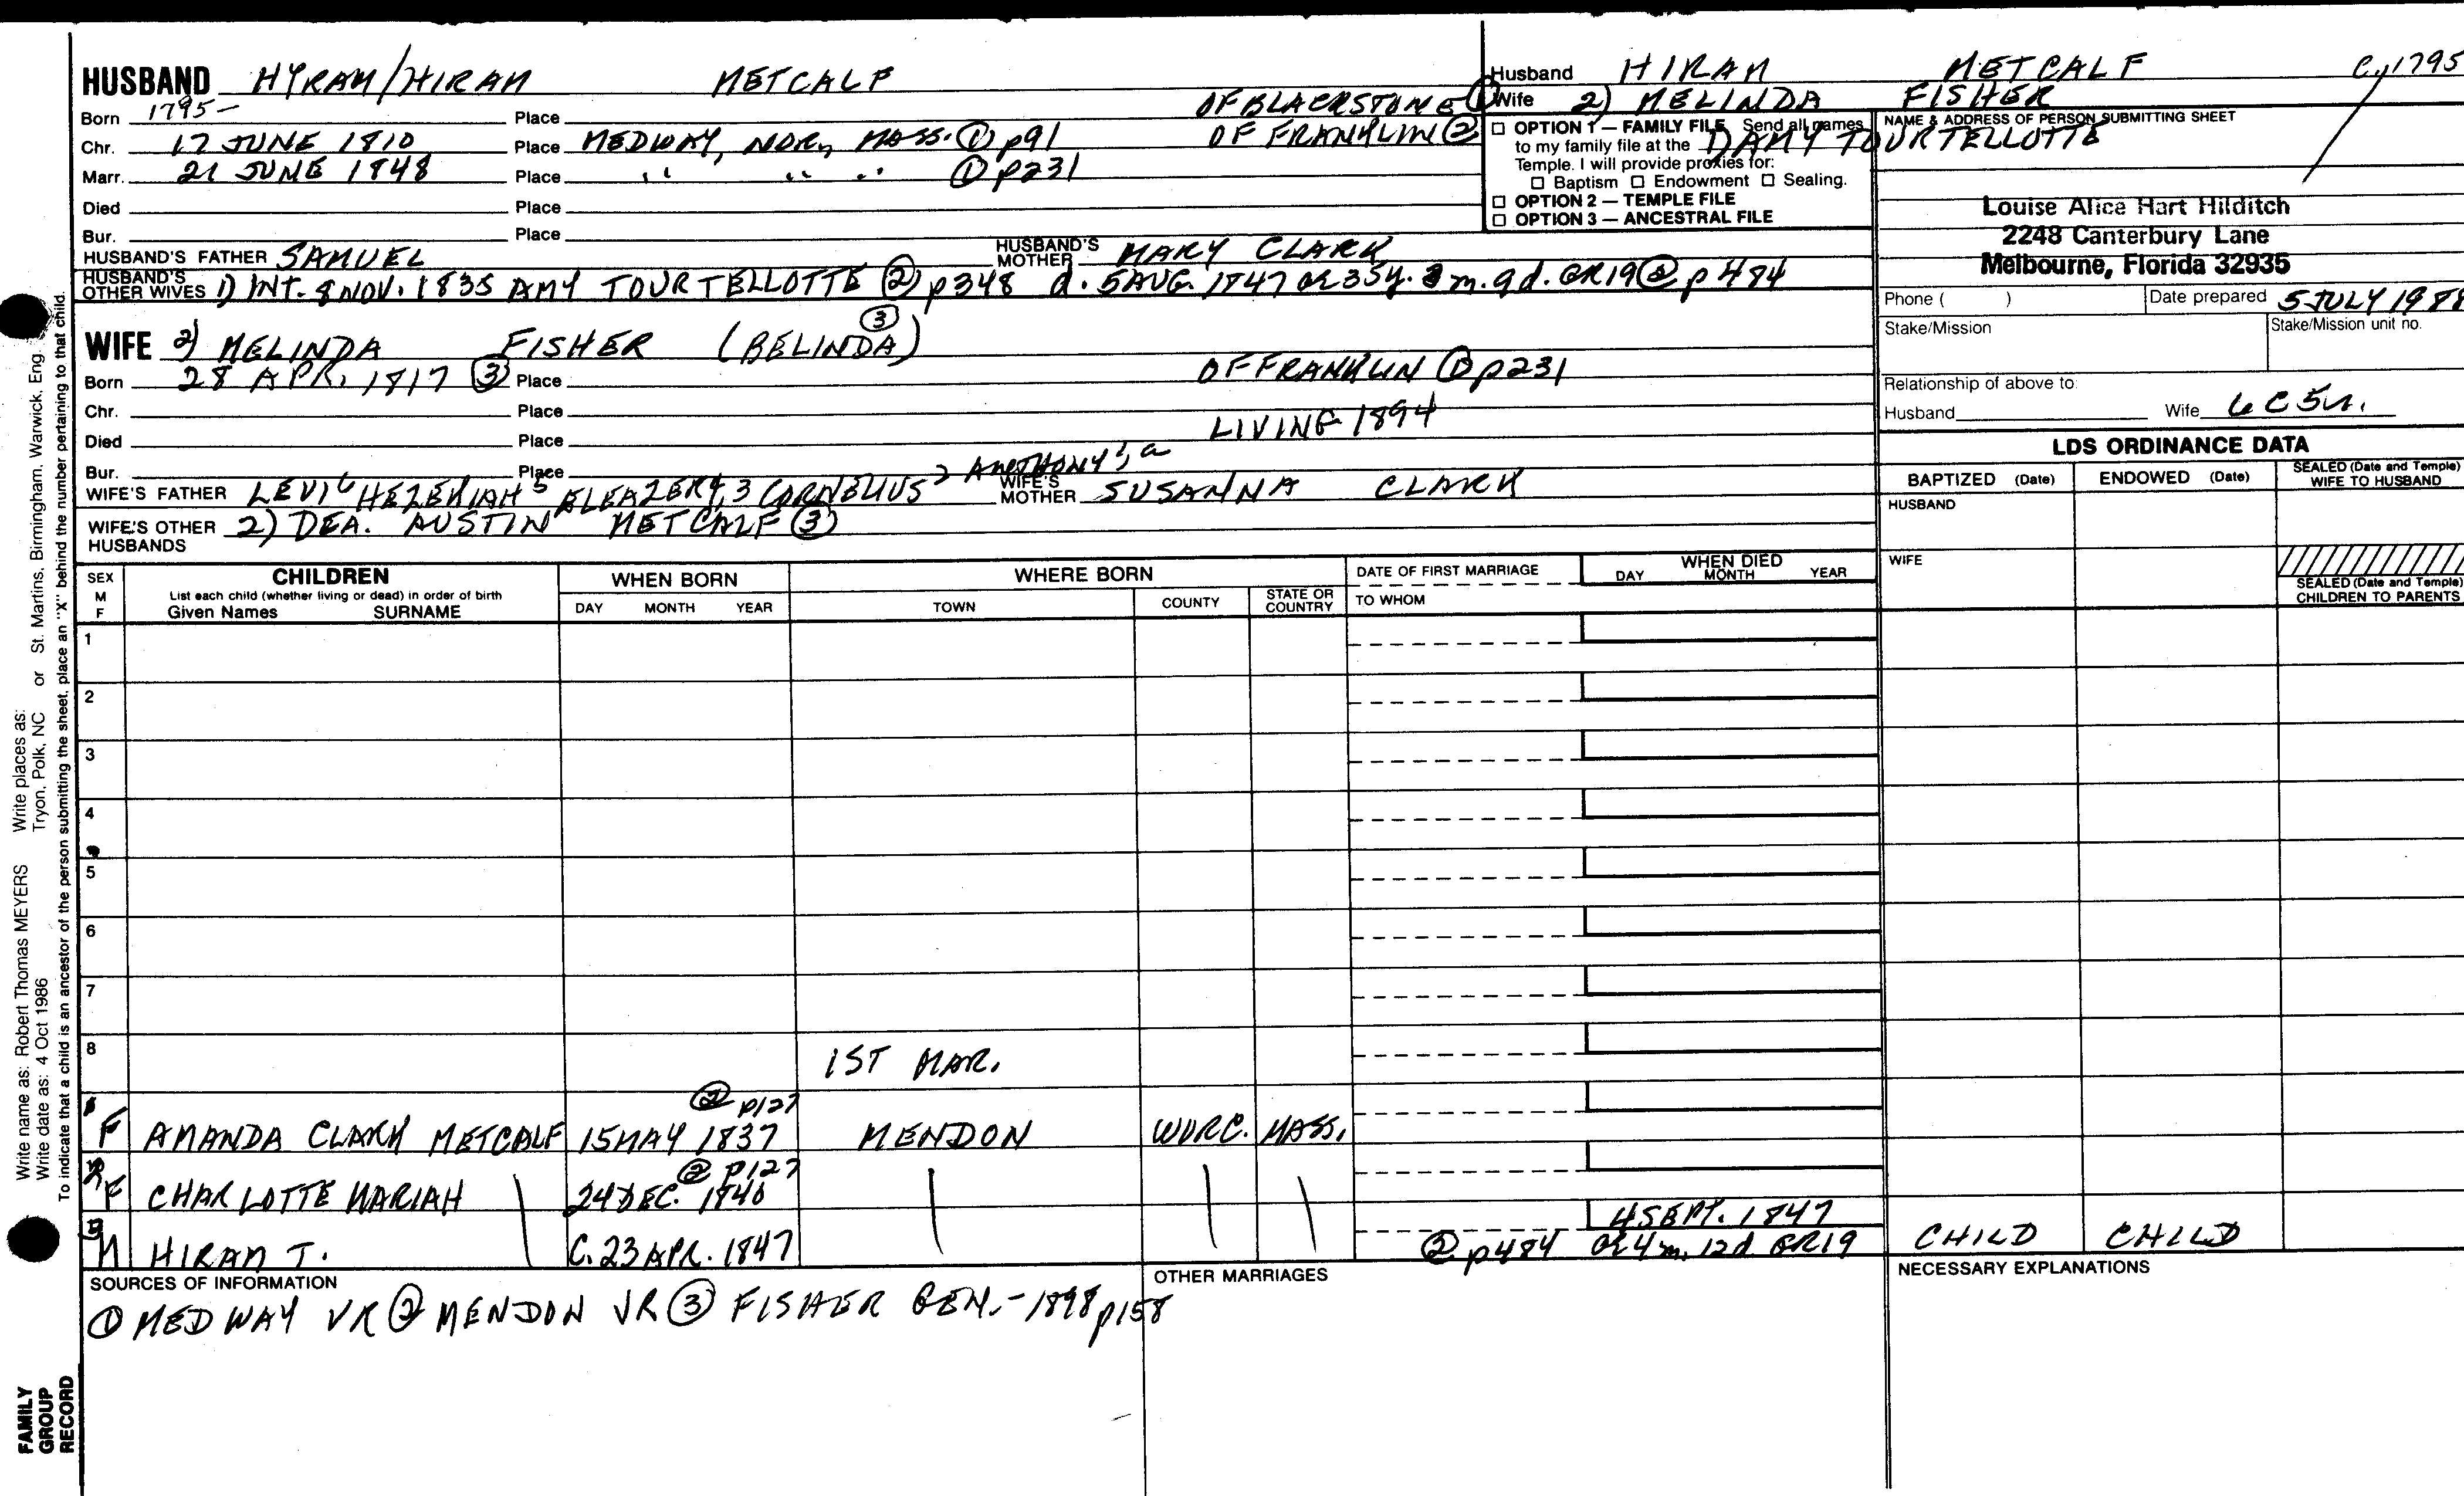 HUSBAND HYRAM/HIRAM METCALF
Born 1795- Place OF BLACKSTONE ①
Chr. 17 JUNE 1810 Place MEDWAY, NOR, MASS. ① p91 OF FRANKLIN ②
Marr. 21 JUNE 1848 Place " " " ① p231
Died Place
Bur. Place
HUSBAND'S FATHER SAMUEL HUSBAND'S MOTHER MARY CLARK
HUSBAND'S OTHER WIVES 1) INT. 8 NOV. 1835 AMY TOURTELLOTTE ② p348 d. 5 AUG. 1847 ae 35y. 3m. 9d. GR19 ② p484
WIFE 2) MELINDA FISHER (BELINDA) ③
Born 28 APR. 1817 ③ Place OF FRANKLIN ① p231
Chr. Place
LIVING 1894
Died Place
Bur. Place
WIFE'S FATHER LEVI6 HEZEKIAH5 ELEAZER4,3 CORNELIUS2 ANTHONY1, a
WIFE'S MOTHER SUSANNA CLARK
WIFE'S OTHER HUSBANDS 2) DEA. AUSTIN METCALF ③
Husband HIRAM METCALF C,1795
Wife 2) MELINDA FISHER
1) AMY TOURTELLOTTE
☐ OPTION 1 — FAMILY FILE Send all names
to my family file at the
Temple. I will provide proxies for:
☐ Baptism ☐ Endowment ☐ Sealing.
☐ OPTION 2 — TEMPLE FILE
☐ OPTION 3 — ANCESTRAL FILE
NAME & ADDRESS OF PERSON SUBMITTING SHEET
Louise Alice Hart Hilditch
2248 Canterbury Lane
Melbourne, Florida 32935
Phone ( ) Date prepared 5 JULY 198
Stake/Mission Stake/Mission unit no.
Relationship of above to:
Husband Wife 6C5R.
LDS ORDINANCE DATA
BAPTIZED (Date) ENDOWED (Date) SEALED (Date and Temple) WIFE TO HUSBAND
HUSBAND
WIFE
SEALED (Date and Temple) CHILDREN TO PARENTS
SEX M F
CHILDREN
List each child (whether living or dead) in order of birth
Given Names SURNAME
WHEN BORN
DAY MONTH YEAR
WHERE BORN
TOWN COUNTY STATE OR COUNTRY
DATE OF FIRST MARRIAGE
TO WHOM
WHEN DIED
DAY MONTH YEAR
1
2
3
4
5
6
7
8 1ST MAR.
② p127
1 F AMANDA CLARK METCALF 15 MAY 1837 MENDON WORC. MASS.
② p127
2 F CHARLOTTE MARIAH 24 DEC. 1840
4 SEPT. 1847
3 M HIRAM T. C. 23 APR. 1847 ② p484 ae 4m. 12d. GR19 CHILD CHILD
SOURCES OF INFORMATION
① MEDWAY VR ② MENDON VR ③ FISHER GEN. - 1898 p158
OTHER MARRIAGES
NECESSARY EXPLANATIONS
Write name as: Robert Thomas MEYERS Write places as:
Write date as: 4 Oct 1986 Tryon, Polk, NC or St. Martins, Birmingham, Warwick, Eng.
To indicate that a child is an ancestor of the person submitting the sheet, place an "X" behind the number pertaining to that child.
FAMILY
GROUP
RECORD